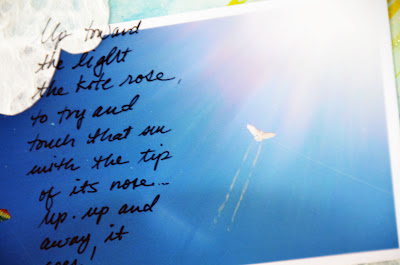 Up toward
the light
the kite rose,
to try and
touch that sun
with the tip
of its nose...
up. up and
away, it